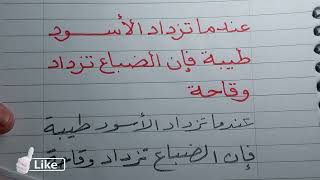 عندما تزداد الأسود
طيبة فإن الضباع تزداد
وقاحة
عندما تزداد الأسود طيبة
فإن الضباع تزداد وقاحة
Like